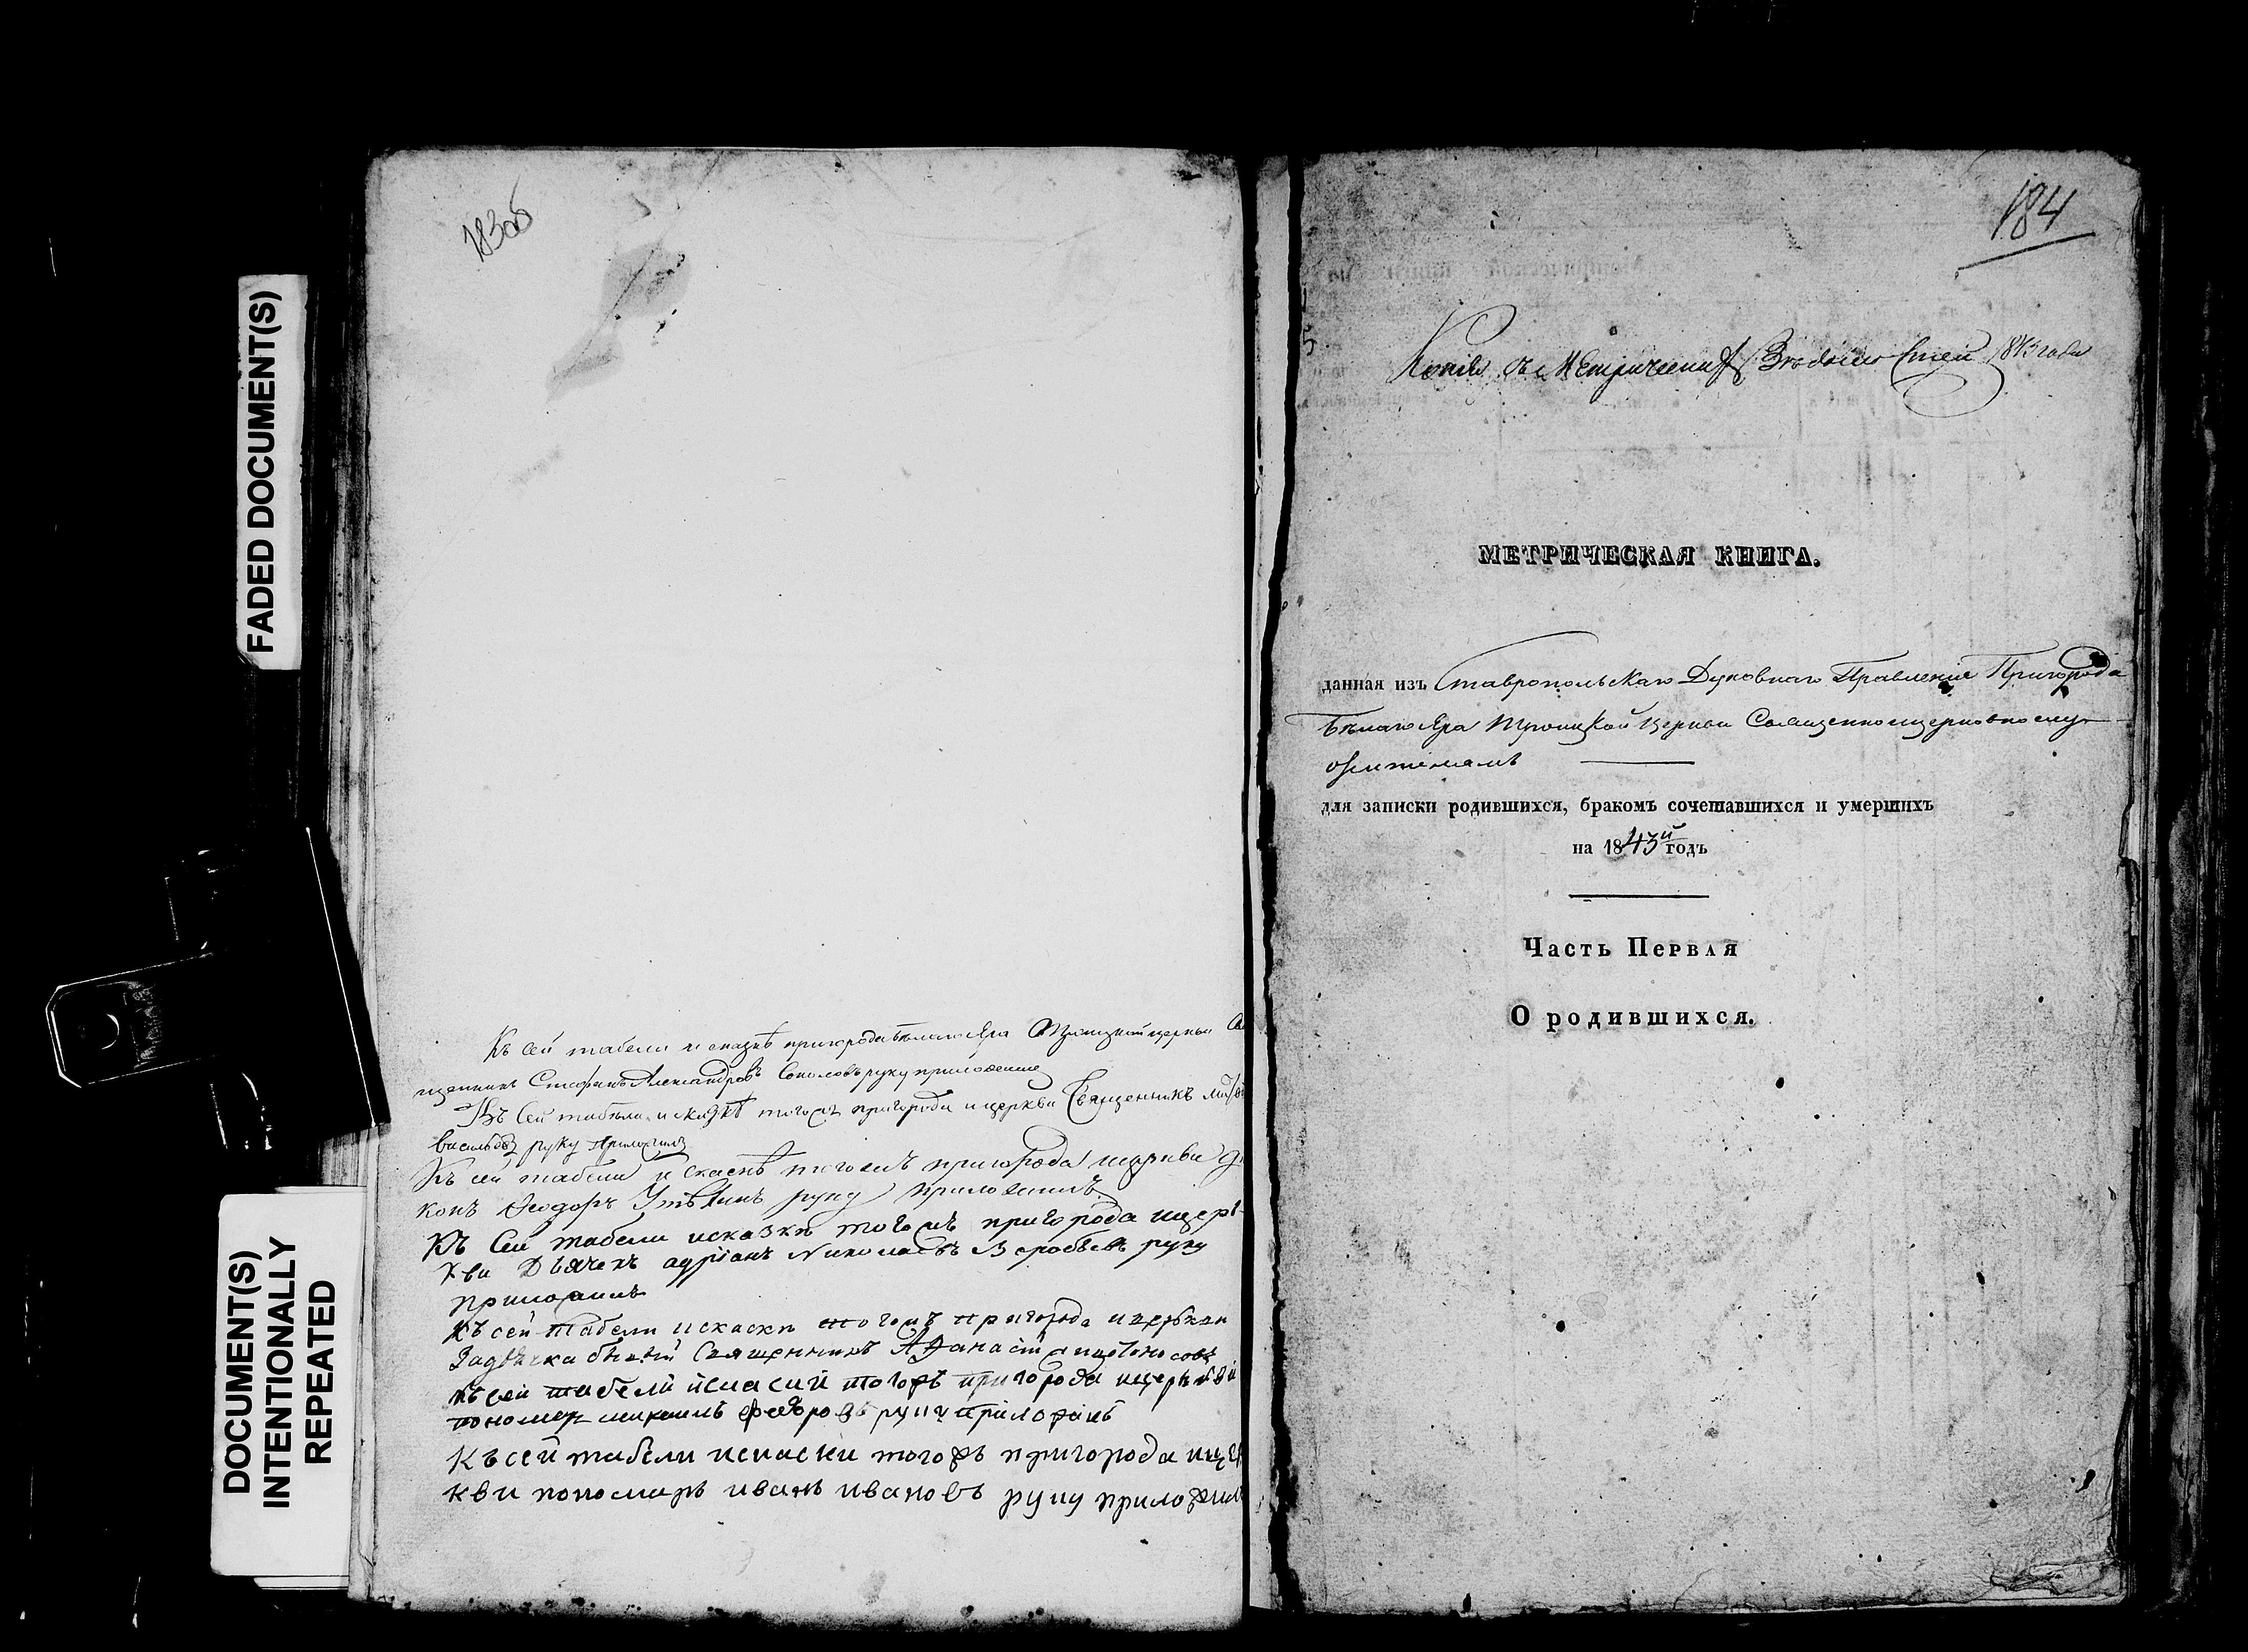 FADED DOCUMENT(S)
DOCUMENT(S)
INTENTIONALLY
REPEATED
183об
Къ сей табели и сказкѣ пригорода Бѣлаго Яра Троицкой церкви Свя
щенникъ Стефанъ Александровъ Соколовъ руку приложилъ
Къ сей табели и сказкѣ тогожъ пригорода и церкви Священникъ
Васильевъ руку приложилъ
Къ сей табели и скаскѣ тогожъ пригорода и церкви
конъ Ѳеодоръ руку приложилъ
Къ сей табели и сказки тогожъ пригорода и цер
кви Дьячекъ адріанъ Николаевъ Воробьевъ руку
приложилъ
Къ сей табели и скаски тогожъ пригорода и церкви
Священникъ Афанасій
къ сей табели искаски тогожъ пригорода ицеркви
пономарь михаилъ федоровъ руку приложилъ
Къ сей табели искаски тогожъ пригорода ице
кви пономарь иванъ ивановъ руку приложил
184
Копія съ Метрической 1843 года
МЕТРИЧЕСКАЯ КНИГА.
данная изъ Ставропольскаго Духовнаго Правленія Пригорода
Бѣлаго Яра Троицкой Церкви Священноицерковнослу-
жителямъ
для записки родившихся, бракомъ сочетавшихся и умершихъ
на 1843й годъ
Часть Первая
О родившихся.